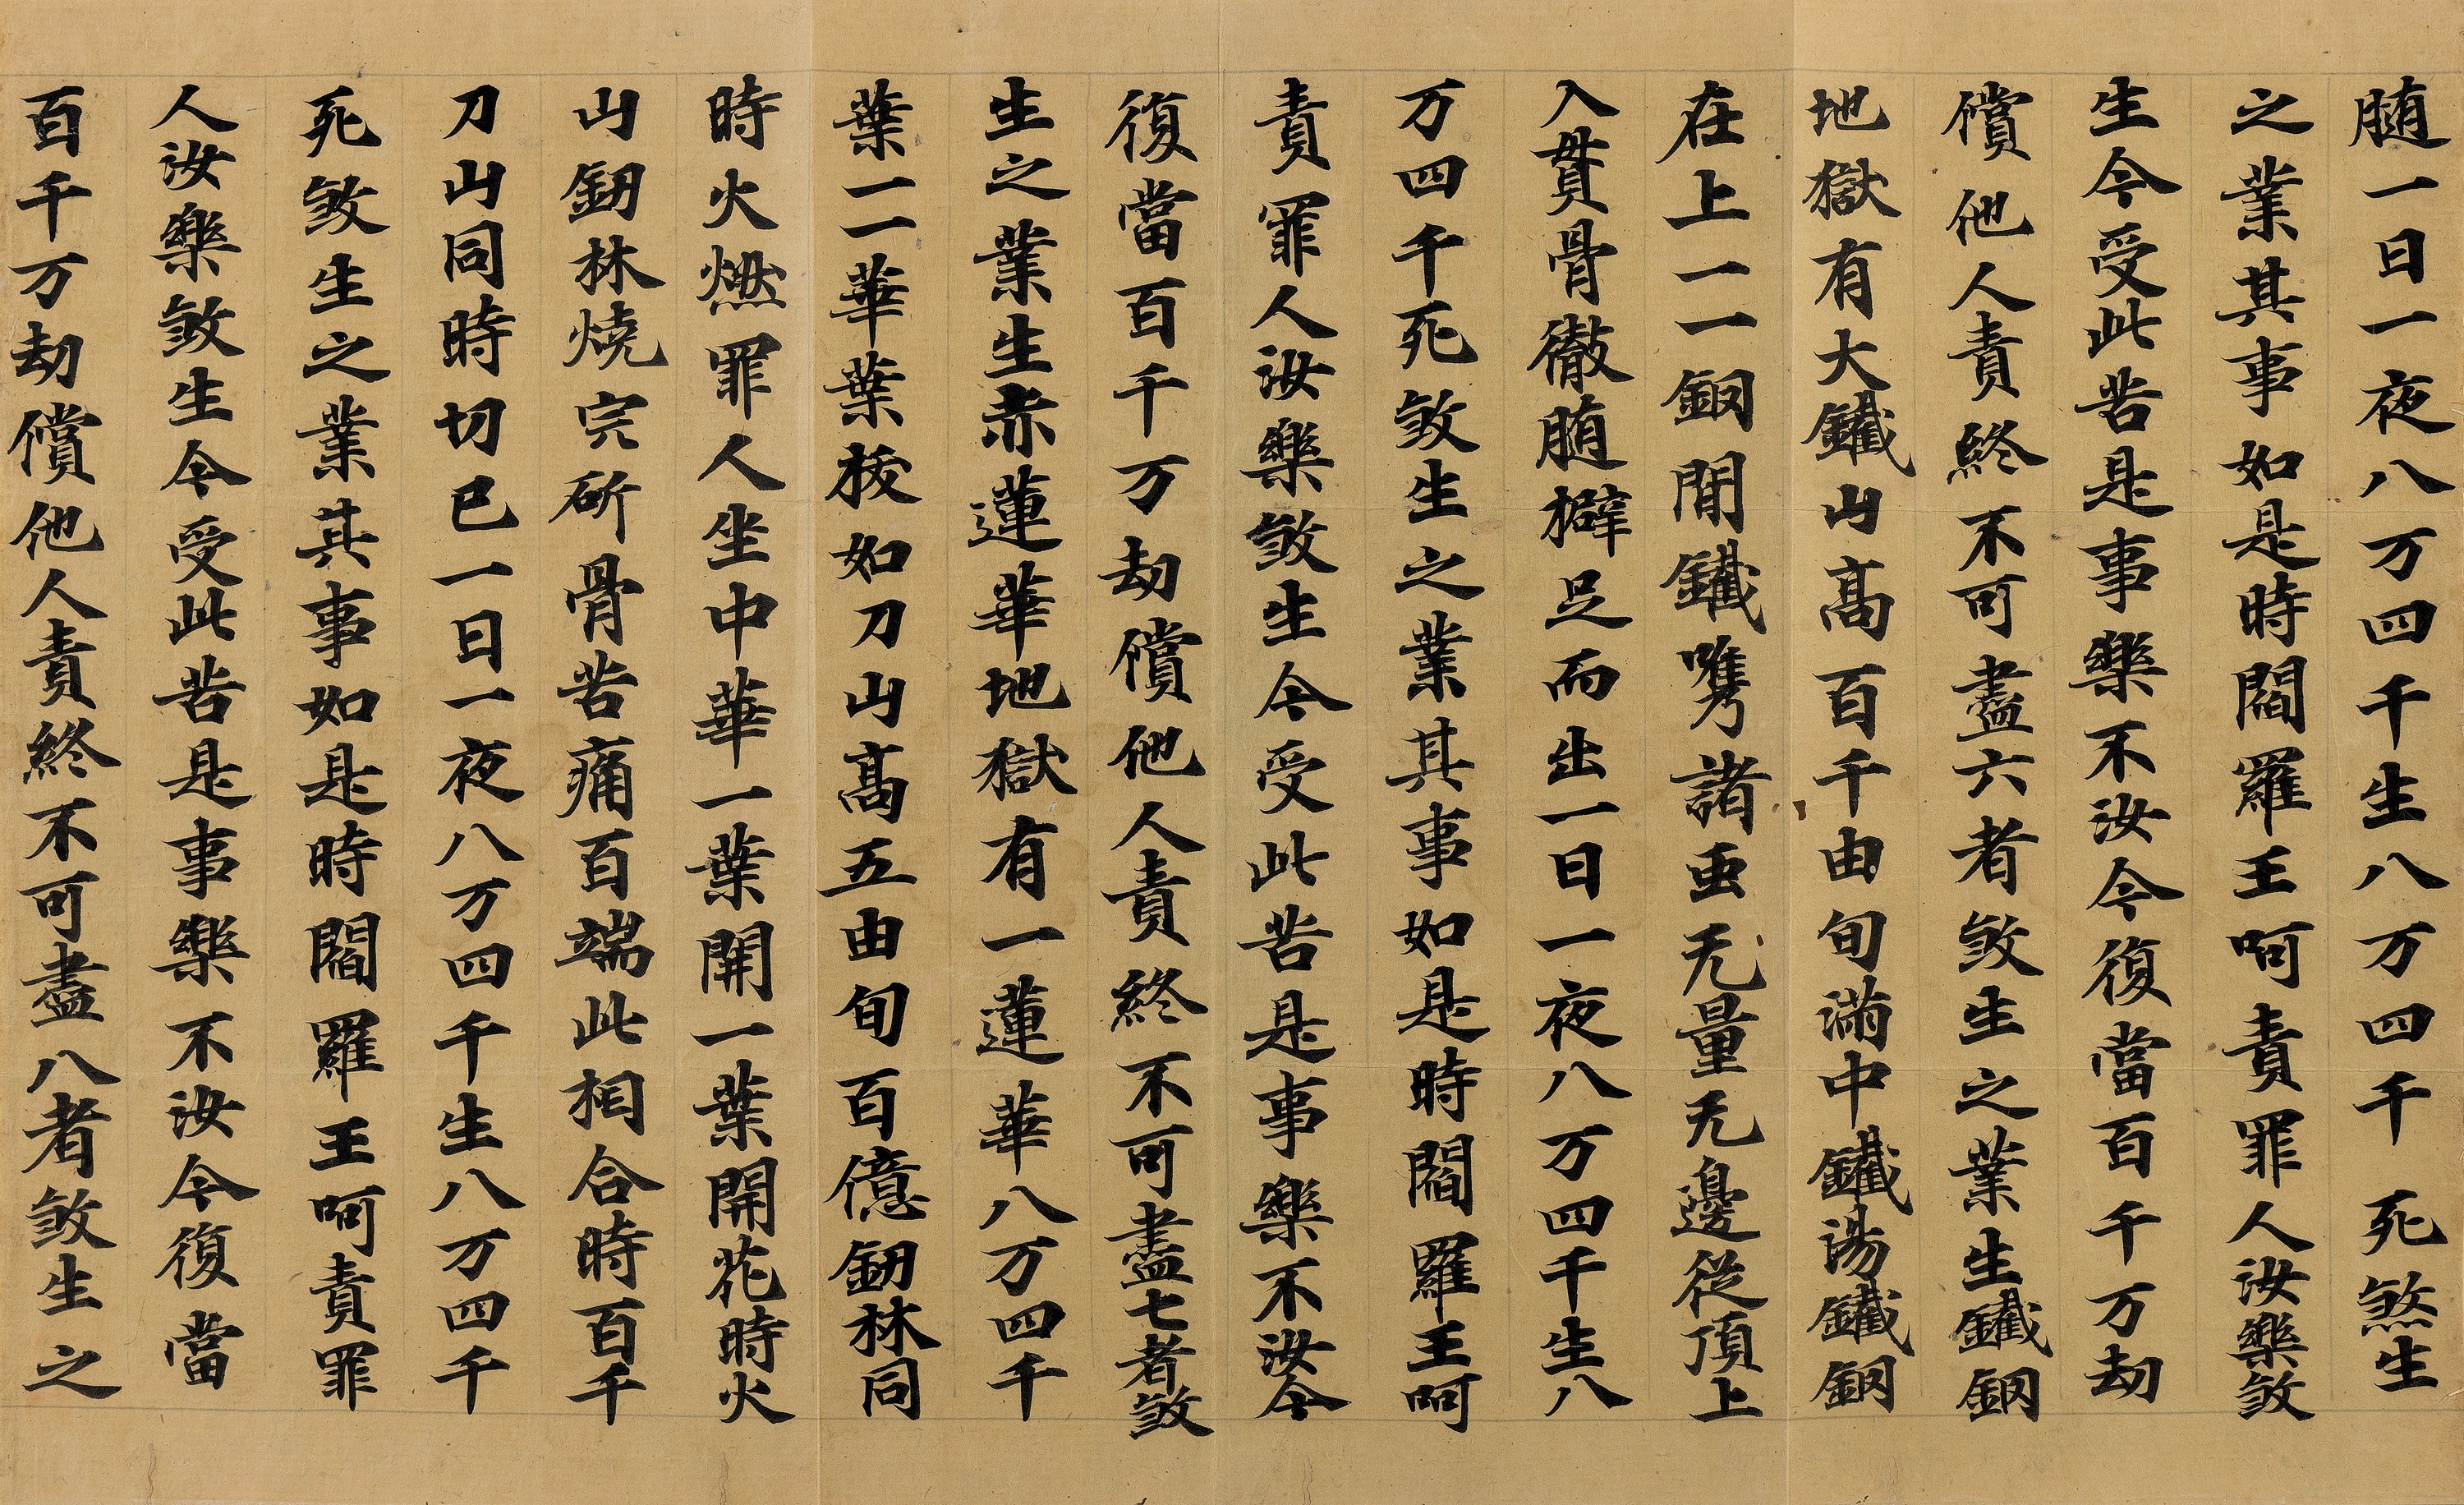 䐉一日一夜八万四千生八万四千死煞生
之業其事如是時閻羅王呵責罪人汝樂煞
生今受此苦是事樂不汝今復當百千万劫
償他人責終不可盡六者煞生之業生鐵䥐
地獄有大鐵山高百千由旬滿中鐵湯鐵䥐
在上一一䥐間鐵㗱諸虫无量无邊從頂上
入貫骨徹䐉擗足而出一日一夜八万四千生八
万四千死煞生之業其事如是時閻羅王呵
責罪人汝樂煞生今受此苦是事樂不汝今
復當百千万劫償他人責終不可盡七者煞
生之業生赤蓮華地獄有一蓮華八万四千
葉一一華葉葉如刀山高五由旬百億釼林同
時火燃罪人坐中華一葉開一葉開花時火
山釼林燒完斫骨苦痛百端此相合時百千
刀山同時切已一日一夜八万四千生八万四千
死煞生之業其事如是時閻羅王呵責罪
人汝樂煞生今受此苦是事樂不汝今復當
百千万劫償他人責終不可盡八者煞生之